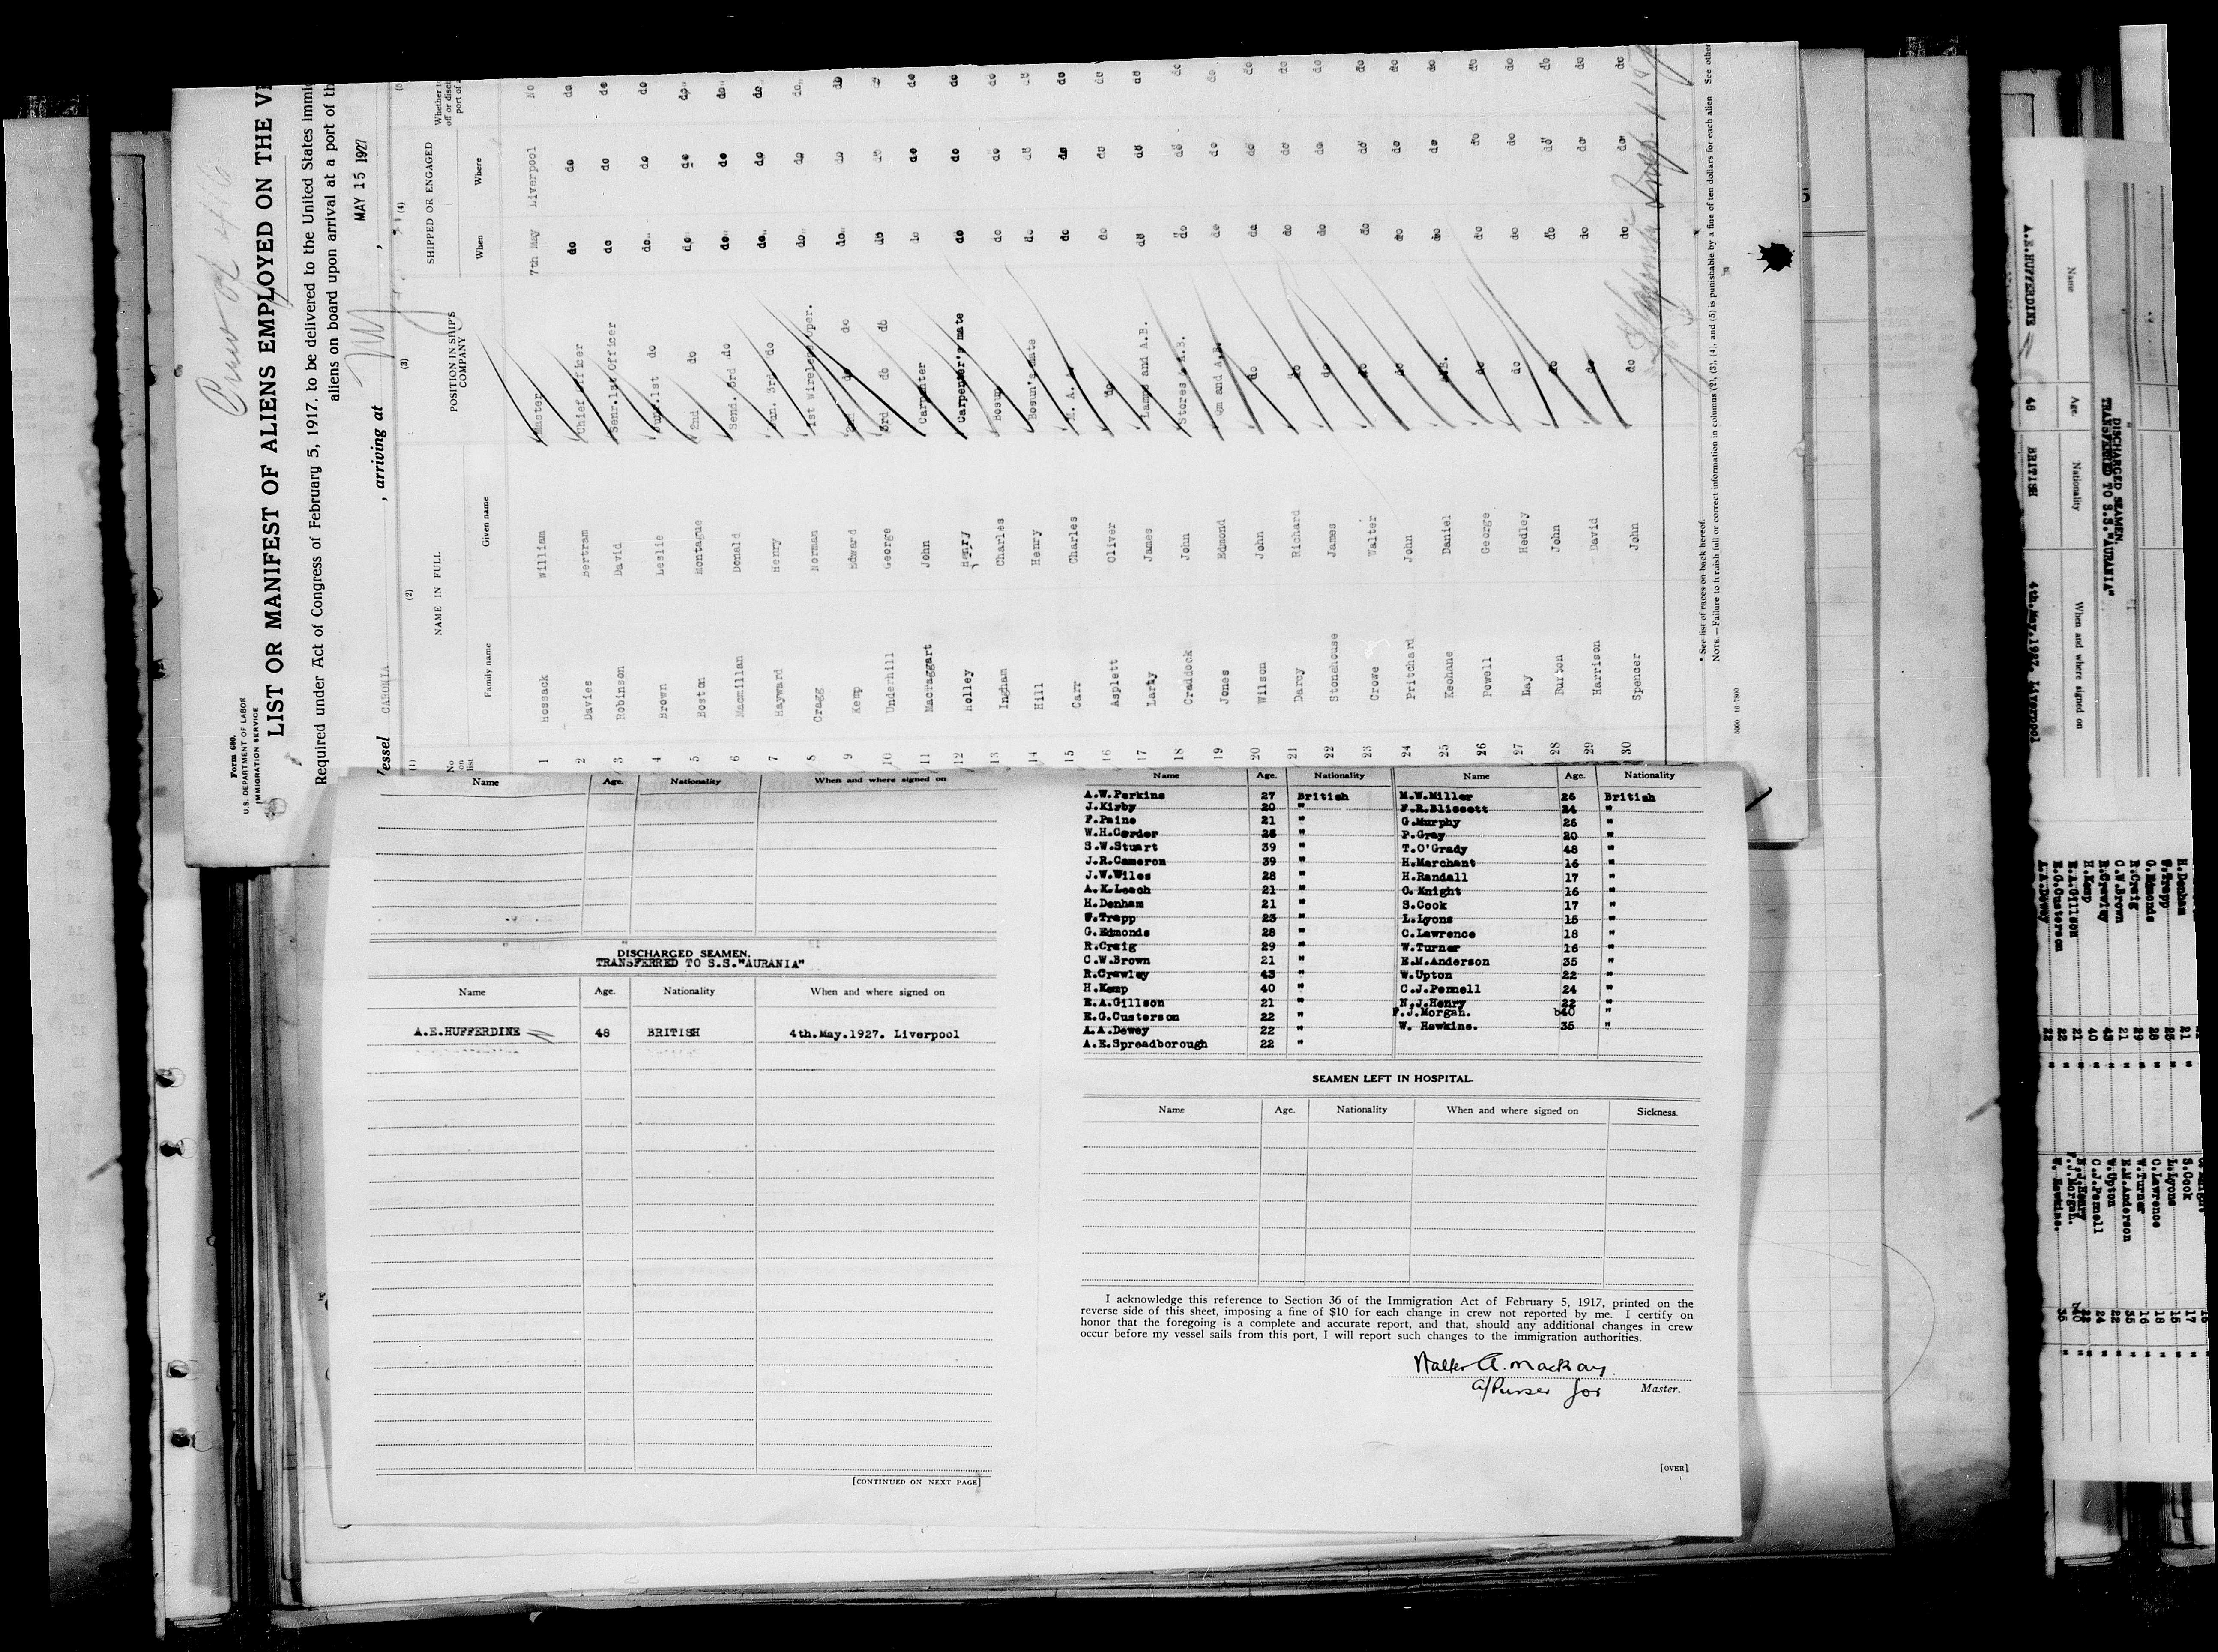 Crew of 416
Form 680.
U.S. DEPARTMENT OF LABOR
IMMIGRATION SERVICE
LIST OR MANIFEST OF ALIENS EMPLOYED ON THE
Required under Act of Congress of February 5, 1917, to be delivered to the United States
aliens on board upon arrival at a port of
CARONIA , arriving at , MAY 15 1927
(1) (2) (3) (4)
No on list NAME IN FULL POSITION IN SHIP'S COMPANY SHIPPED OR ENGAGED
Family name Given name When Where
1 Hossack William Master 7th May Liverpool No
2 Davies Bertram Chief Officer do do do
3 Robinson David Senr.1st Officer do do do
4 Brown Leslie Junr.1st do do do do
5 Boston Montague 2nd do do do do
6 Macmillan Donald Send. 3rd do do do do
7 Hayward Henry Jun. 3rd do do do do
8 Cragg Norman 1st Wireless Oper. do do do
9 Kemp Edward 2nd do do do do
10 Underhill George 3rd do do do do
11 Mactaggart John Carpenter do do do
12 Holley Henry Carpenter's mate do do do
13 Ingham Charles Bosun do do do
14 Hill Henry Bosun's mate do do do
15 Carr Charles M. A. A. do do do
16 Asplett Oliver do do do do
17 Larty James Lamps and A.B. do do do
18 Craddock John Stores & A.B. do do do
19 Jones Edmond Qm and A.B. do do do
20 Wilson John do do do do
21 Darcy Richard do do do do
22 Stonehouse James do do do do
23 Crowe Walter do do do do
24 Pritchard John do do do do
25 Keohane Daniel A.B. do do do
26 Powell George do do do do
27 Hedley do do do do
28 Burton John do do do do
29 Harrison David do do do do
30 Spencer John do do do do
* See list of races on back hereof.
NOTE.—Failure to furnish full or correct information in columns (2), (3), (4), and (5) is punishable by a fine of ten dollars for each alien See other
Name Age. Nationality When and where signed on
DISCHARGED SEAMEN.
TRANSFERRED TO S.S."AURANIA"
Name Age. Nationality When and where signed on
A.E.HUFFERDINE 48 BRITISH 4th.May.1927. Liverpool
[CONTINUED ON NEXT PAGE]
Name Age. Nationality Name Age. Nationality
A.W.Perkins 27 British M.W.Miller 26 British
J.Kirby 20 " F.R.Blissett 24 "
F.Paine 21 " G.Murphy 26 "
W.H.Corder 25 " P.Gray 20 "
S.W.Stuart 39 " T.O'Grady 48 "
J.R.Cameron 39 " H.Marchant 16 "
J.W.Wiles 28 " H.Randall 17 "
A.K.Leach 21 " G.Knight 16 "
H.Denham 21 " S.Cook 17 "
Trapp 25 " L.Lyons 15 "
G.Edmonds 28 " C.Lawrence 18 "
R.Craig 29 " W.Turner 16 "
C.W.Brown 21 " E.M.Anderson 35 "
R.Crawley 43 " W.Upton 22 "
H.Kemp 40 " C.J.Pennell 24 "
E.A.Gillson 21 " N.J.Henry 22 "
E.G.Custerson 22 " F.J.Morgan. 40 "
A.A.Dewey 22 " W. Hawkins. 35 "
A.E.Spreadborough 22 "
SEAMEN LEFT IN HOSPITAL.
Name Age. Nationality When and where signed on Sickness.
I acknowledge this reference to Section 36 of the Immigration Act of February 5, 1917, printed on the
reverse side of this sheet, imposing a fine of $10 for each change in crew not reported by me. I certify on
honor that the foregoing is a complete and accurate report, and that, should any additional changes in crew
occur before my vessel sails from this port, I will report such changes to the immigration authorities.
Walter A. Mackay.
a/Purser for Master.
[OVER]
A.E.HUFFERDINE 48 BRITISH 4th.May.1927. Liverpool
Name Age. Nationality When and where signed on
DISCHARGED SEAMEN.
TRANSFERRED TO S.S."AURANIA"
H.Denham 21 " S.Cook 17 "
Trapp 25 " L.Lyons 15 "
G.Edmonds 28 " C.Lawrence 18 "
R.Craig 29 " W.Turner 16 "
C.W.Brown 21 " E.M.Anderson 35 "
R.Crawley 43 " W.Upton 22 "
H.Kemp 40 " C.J.Pennell 24 "
E.A.Gillson 21 " N.J.Henry 22 "
E.G.Custerson 22 " F.J.Morgan. 40 "
A.A.Dewey 22 " W. Hawkins. 35 "